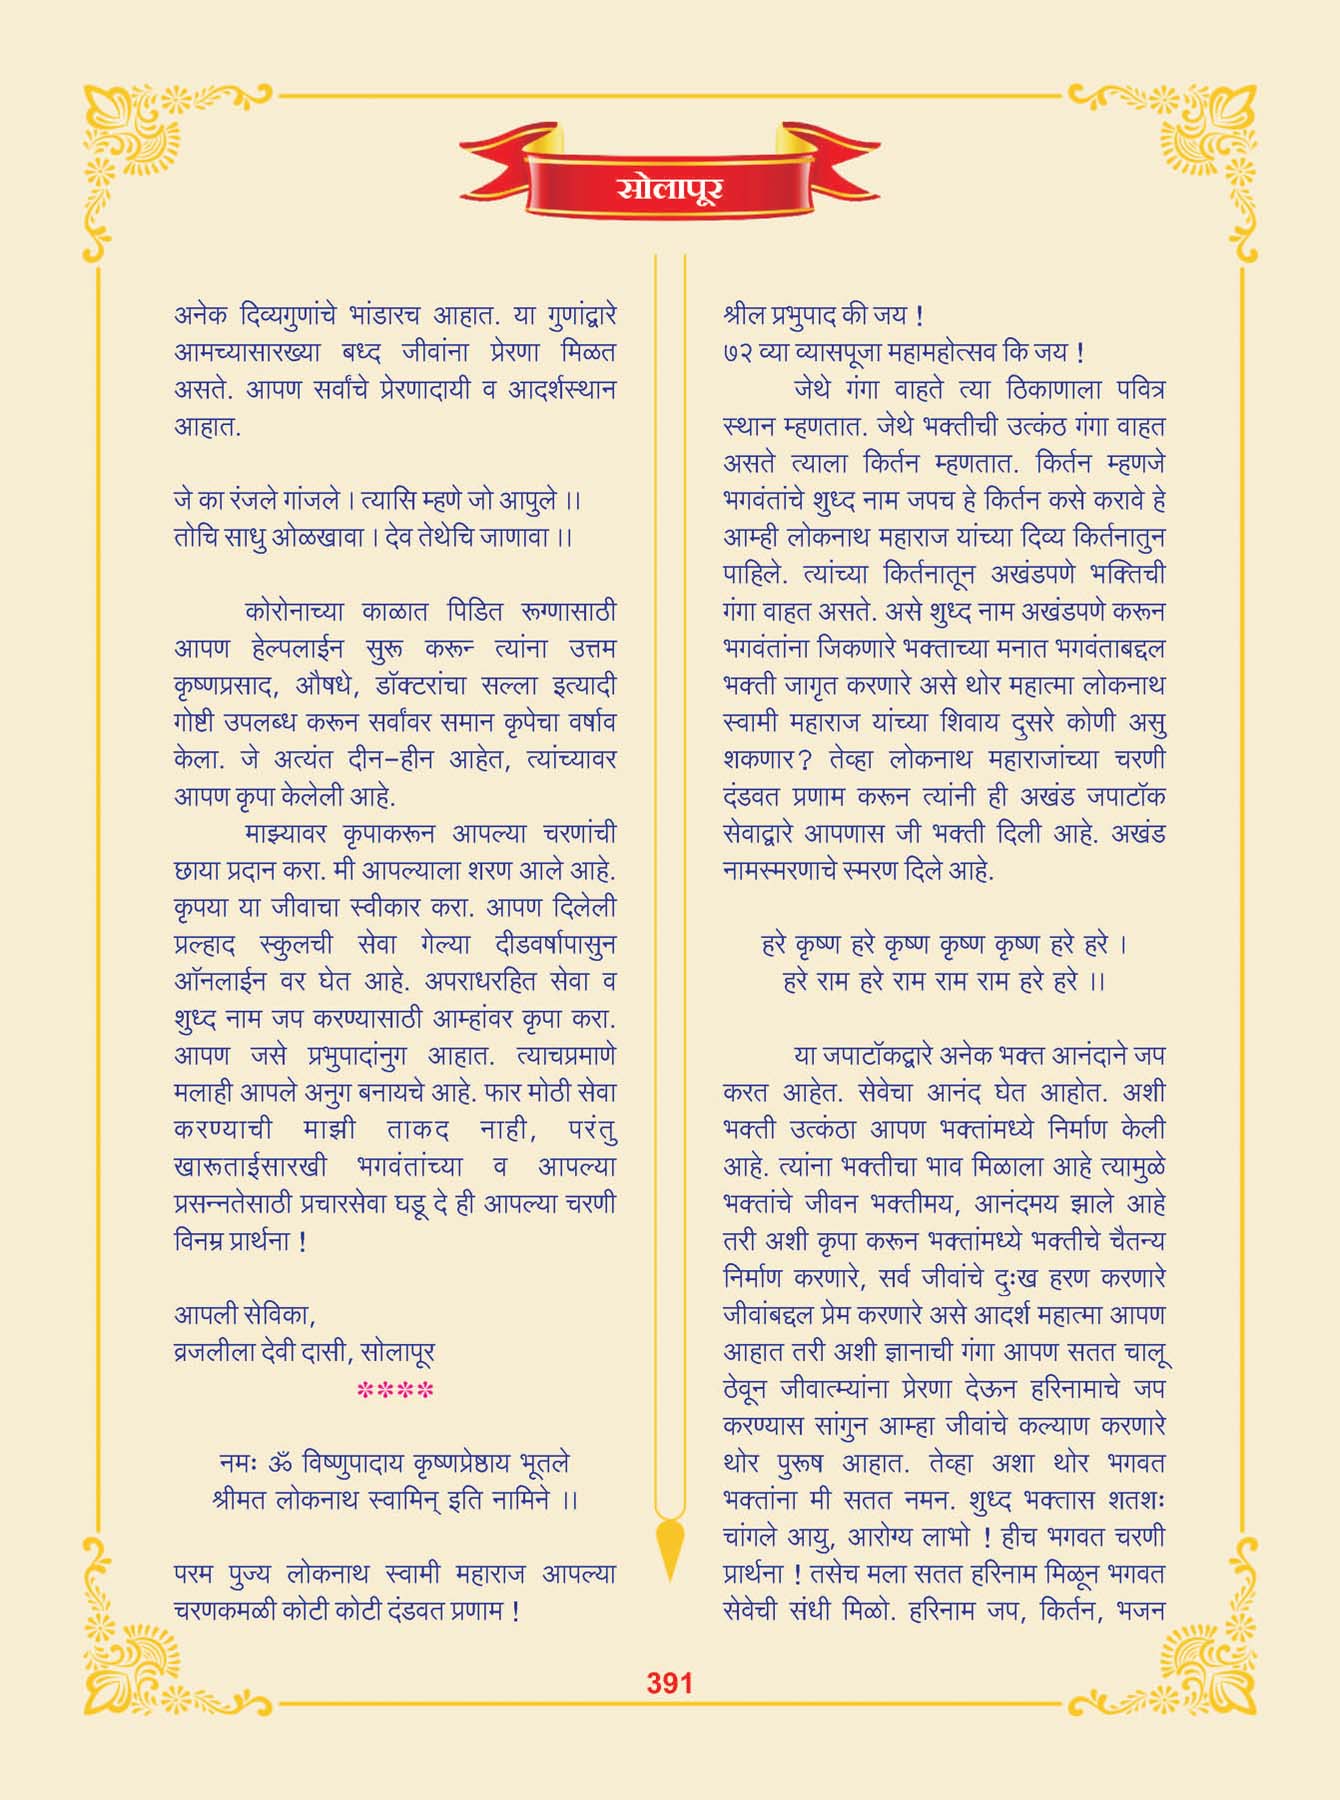 सोलापूर
अनेक दिव्यगुणांचे भांडारच आहात. या गुणांद्वारे
आमच्यासारख्या बध्द जीवांना प्रेरणा मिळत
असते. आपण सर्वांचे प्रेरणादायी व आदर्शस्थान
आहात.
जे का रंजले गांजले । त्यासि म्हणे जो आपुले ।।
तोचि साधु ओळखावा । देव तेथेचि जाणावा ।।
कोरोनाच्या काळात पिडित रूग्णासाठी
आपण हेल्पलाईन सुरू करून्‍ त्यांना उत्तम
कृष्णप्रसाद, औषधे, डॉक्टरांचा सल्ला इत्यादी
गोष्टी उपलब्ध करून सर्वांवर समान कृपेचा वर्षाव
केला. जे अत्यंत दीन-हीन आहेत, त्यांच्यावर
आपण कृपा केलेली आहे.
माझ्यावर कृपाकरून आपल्या चरणांची
छाया प्रदान करा. मी आपल्याला शरण आले आहे.
कृपया या जीवाचा स्वीकार करा. आपण दिलेली
प्रल्हाद स्कुलची सेवा गेल्या दीडवर्षापासुन
ऑनलाईन वर घेत आहे. अपराधरहित सेवा व
शुध्द नाम जप करण्यासाठी आम्हांवर कृपा करा.
आपण जसे प्रभुपादांनुग आहात. त्याचप्रमाणे
मलाही आपले अनुग बनायचे आहे. फार मोठी सेवा
करण्याची माझी ताकद नाही, परंतु
खारूताईसारखी भगवंतांच्या व आपल्या
प्रसन्नतेसाठी प्रचारसेवा घडू दे ही आपल्या चरणी
विनम्र प्रार्थना !
आपली सेविका,
व्रजलीला देवी दासी, सोलापूर
****
नमः ॐ विष्णुपादाय कृष्णप्रेष्ठाय भूतले
श्रीमत लोकनाथ स्वामिन् इति नामिने ।।
परम पुज्य लोकनाथ स्वामी महाराज आपल्या
चरणकमळी कोटी कोटी दंडवत प्रणाम !
श्रील प्रभुपाद की जय !
७२ व्या व्यासपूजा महामहोत्सव कि जय !
जेथे गंगा वाहते त्या ठिकाणाला पवित्र
स्थान म्हणतात. जेथे भक्तीची उत्कंठ गंगा वाहत
असते त्याला किर्तन म्हणतात. किर्तन म्हणजे
भगवंतांचे शुध्द नाम जपच हे किर्तन कसे करावे हे
आम्ही लोकनाथ महाराज यांच्या दिव्य किर्तनातुन
पाहिले. त्यांच्या किर्तनातून अखंडपणे भक्तिची
गंगा वाहत असते. असे शुध्द नाम अखंडपणे करून
भगवंतांना जिकणारे भक्ताच्या मनात भगवंताबद्दल
भक्ती जागृत करणारे असे थोर महात्मा लोकनाथ
स्वामी महाराज यांच्या शिवाय दुसरे कोणी असु
शकणार? तेव्हा लोकनाथ महाराजांच्या चरणी
दंडवत प्रणाम करून त्यांनी ही अखंड जपाटॉक
सेवाद्वारे आपणास जी भक्ती दिली आहे. अखंड
नामस्मरणाचे स्मरण दिले आहे.
हरे कृष्ण हरे कृष्ण कृष्ण कृष्ण हरे हरे ।
हरे राम हरे राम राम राम हरे हरे ।।
या जपाटॉकद्वारे अनेक भक्त आनंदाने जप
करत आहेत. सेवेचा आनंद घेत आहोत. अशी
भक्ती उत्कंठा आपण भक्तांमध्ये निर्माण केली
आहे. त्यांना भक्तीचा भाव मिळाला आहे त्यामुळे
भक्तांचे जीवन भक्तीमय, आनंदमय झाले आहे
तरी अशी कृपा करून भक्तांमध्ये भक्तीचे चैतन्य
निर्माण करणारे, सर्व जीवांचे दुःख हरण करणारे
जीवांबद्दल प्रेम करणारे असे आदर्श महात्मा आपण
आहात तरी अशी ज्ञानाची गंगा आपण सतत चालू
ठेवून जीवात्म्यांना प्रेरणा देऊन हरिनामाचे जप
करण्यास सांगुन आम्हा जीवांचे कल्याण करणारे
थोर पुरूष आहात. तेव्हा अशा थोर भगवत
भक्तांना मी सतत नमन. शुध्द भक्तास शतशः
चांगले आयु, आरोग्य लाभो ! हीच भगवत चरणी
प्रार्थना ! तसेच मला सतत हरिनाम मिळून भगवत
सेवेची संधी मिळो. हरिनाम जप, किर्तन, भजन
391